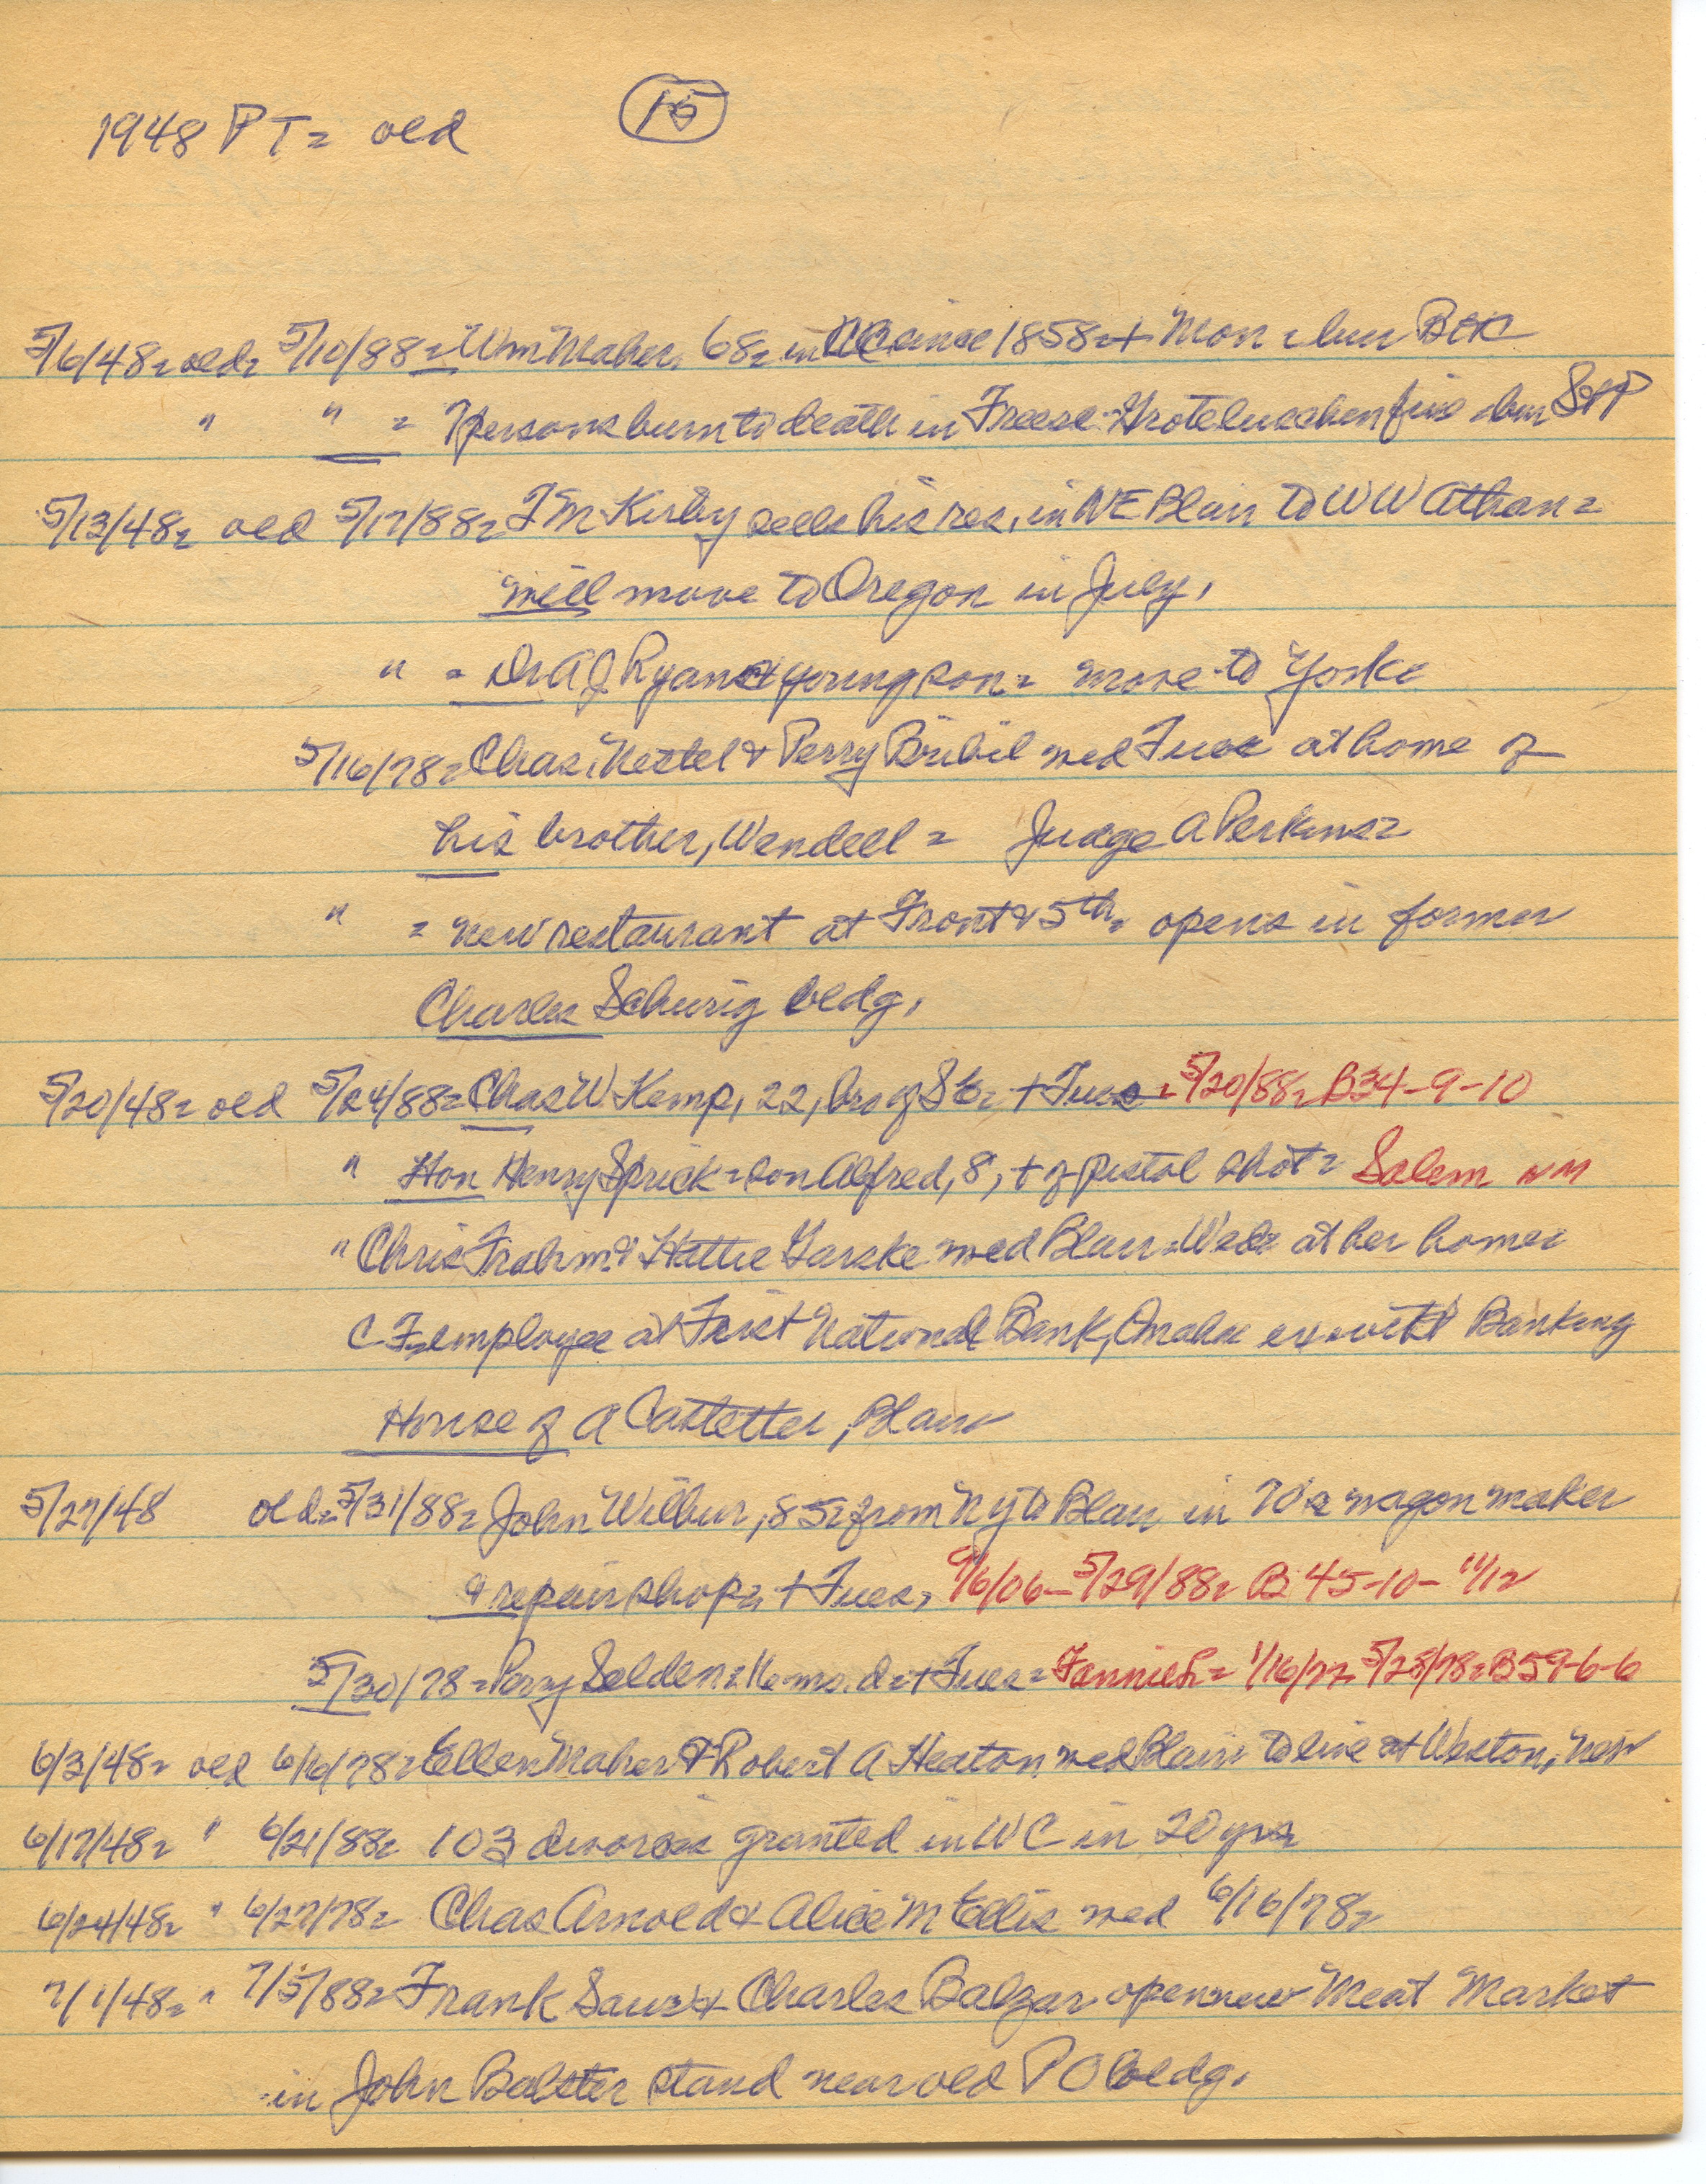 1948 PT= old (15)
5/6/48= old= 5/10/88= Wm Maher, 68= in WC since 1858= + Mon = bur
" " = 7 persons burn to death in Freese-Groteluschen fire = bur
5/13/48= old 5/17/88= J M Kirby sells his res, in NE Blair to W W Athan=
will move to Oregon in July,
" = Dr A J Ryan & young son= move to York=
5/16/78= Chas, Nestel & Perry Bribil wed Tues at home of
his brother, Wendell = Judge A Perkins=
" = new restaurant at Front & 5th= opens in former
Charles Schurig bldg,
5/20/48= old 5/24/88= Chas W Kemp, 22, bro of + Tues = 5/20/88= B34-9-10
" Hon Henry Sprick = son Alfred, 8, + of pistol shot= Salem NM
" Chris Frahm & Hattie Garske wed Blair = Wed= at her home=
C F= employee at First National Bank, Omaha ex with Banking
House of A Castetter, Blair
5/27/48 old= 5/31/88= John Wilbur, 85= from NY to Blair in 70's wagon maker
& repair shop= + Tues, 9/6/06 - 5/29/88= B 45-10- 11/12
5/30/78 = Perry Selden= 16 mo. d= + Tues = Fannie L= 1/16/77 5/28/78= B59-6-6
6/3/48= old 6/6/78= Ellen Maher & Robert A Heaton wed Blair= to live at Weston, New
6/17/48= " 6/21/88= 103 divorces granted in WC in 20 yrs
6/24/48= " 6/27/78= Chas Arnold & Alice M Ellis wed 6/16/78=
7/1/48= " 7/5/88= Frank Saur & Charles Balzar open new Meat Market
in John Balster stand near old PO bldg,